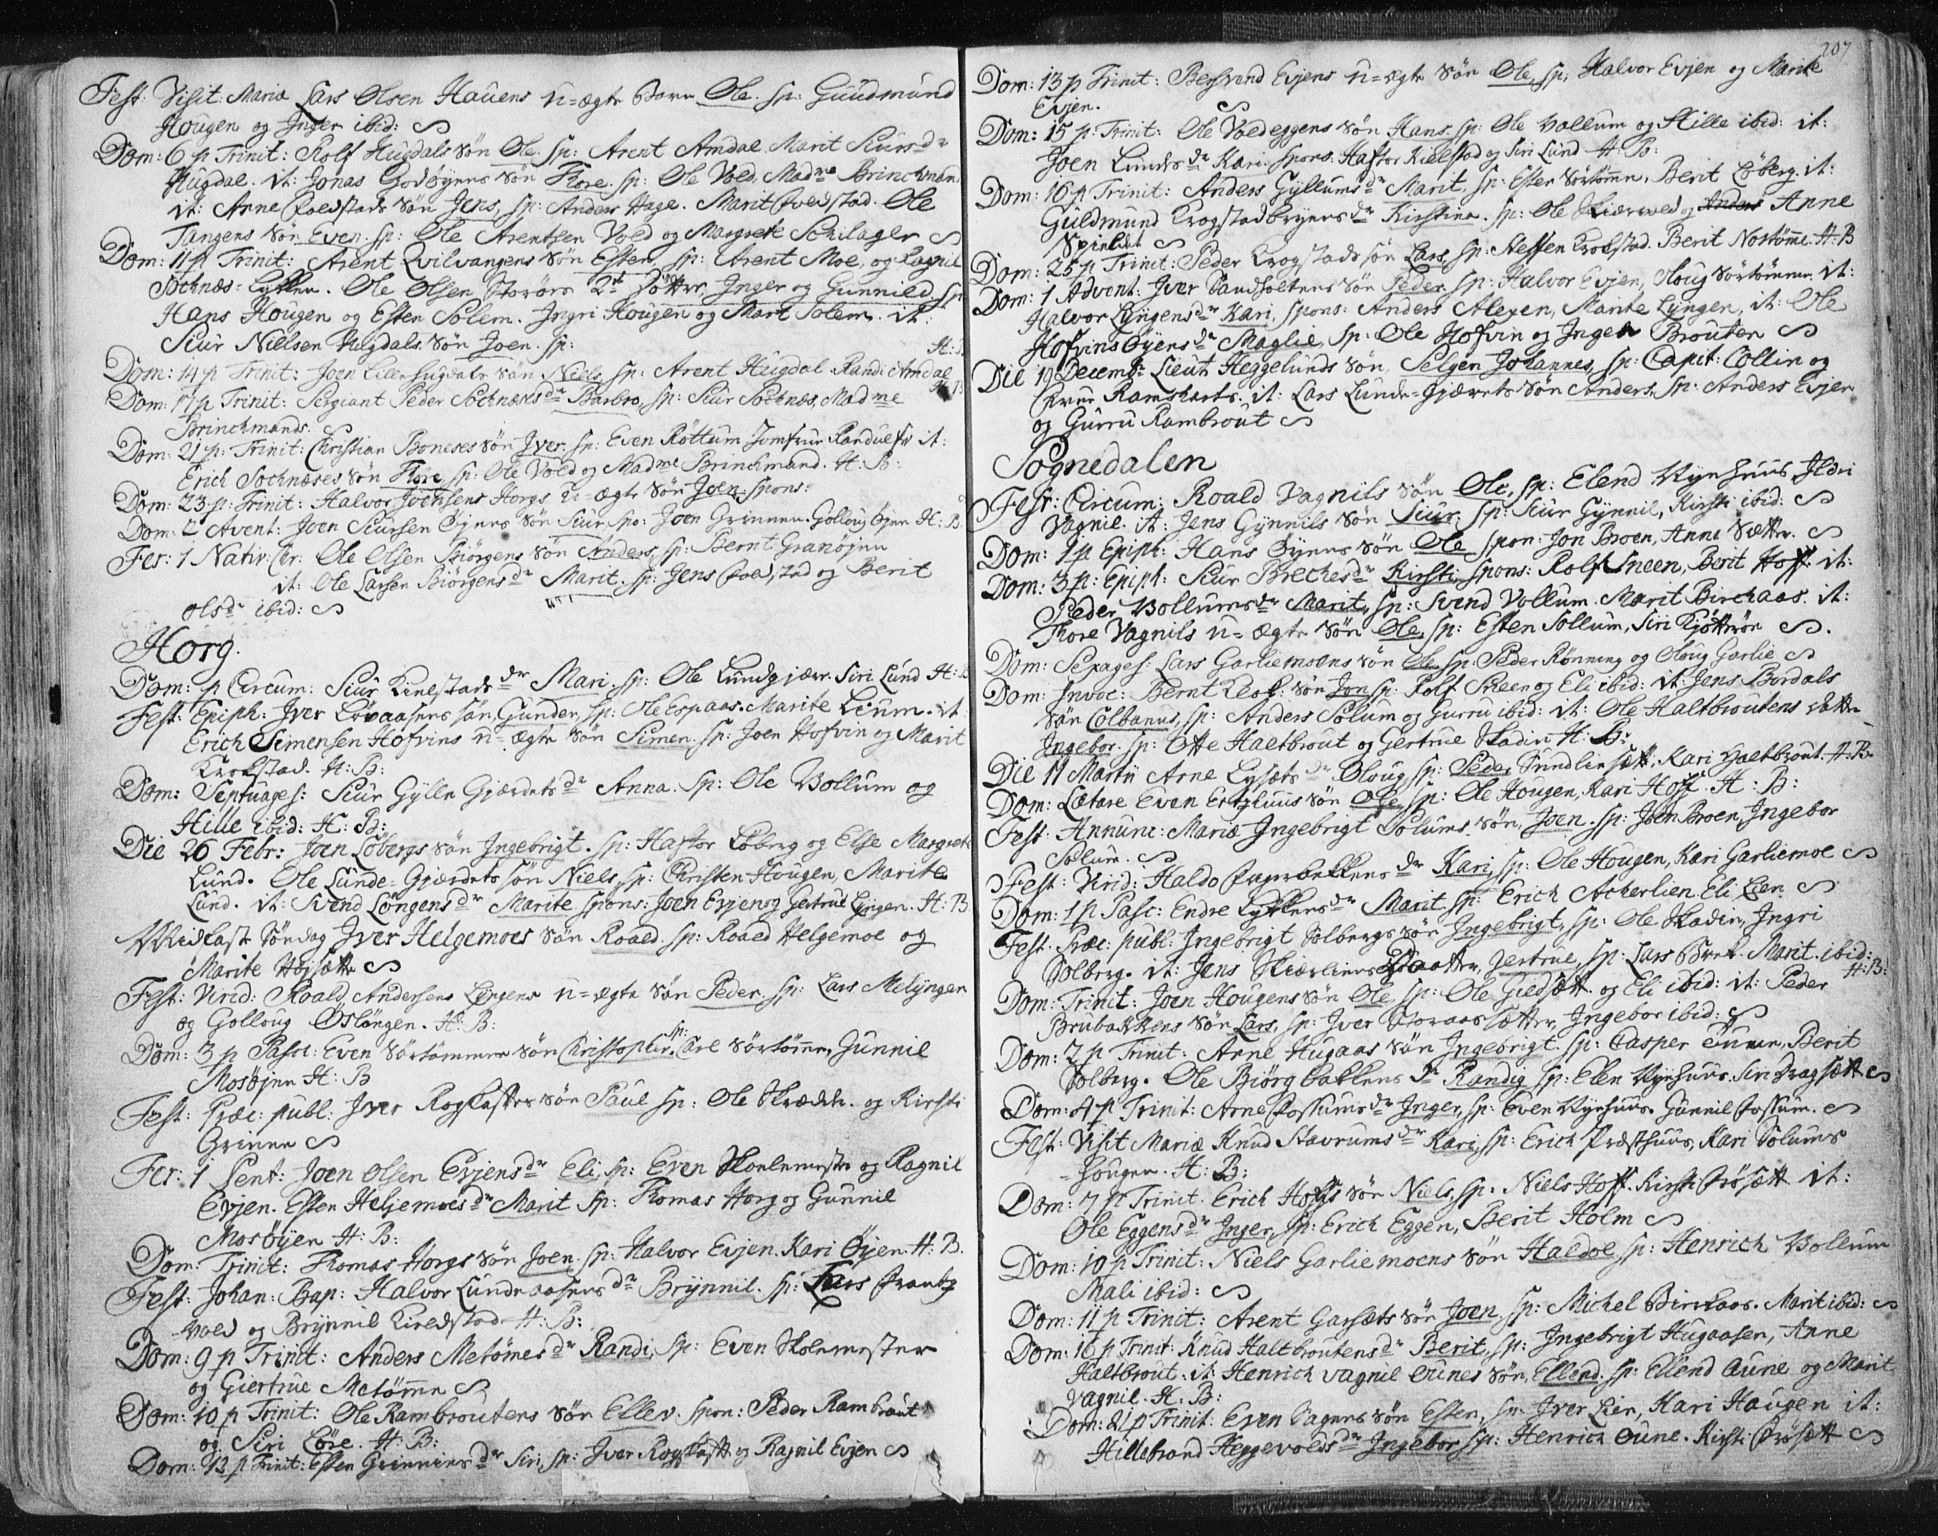 Fest: Visit: Mariæ Lars Olsen Hauens u=ægte Barn Ole. sp: Guudmund
Hougen og Inger ibid:
Dom: 6 p Trinit: Rolf Hugdals søn Ole. sp: Arent Amdal. Marit Siursdr
Hugdal. it: Jonas Godøyens søn Thore. sp: Ole Vold, Madme Brinchman.
it: Anne søn Jens, sp: Anders Hage. Marit Ole
Tangens søn Even. sp: Ole Arentsen Vold og Margrete Schilager
Dom: 11 p Trinit: Arent Qvilvangens søn Esten, sp: Arent Moe, og Ragnil
Sochnæs-Løkken. Ole Olsen Storørs 2de Døttre Inger og Gunnild sp:
Hans Hougen og Esten Solem. Ingri Hougen og Marit Solem. it:
Siur Nielsen Hugdals søn Joen. sp:
H: B
Dom: 14 p Trinit: Joen Lillehugdals søn Niels, sp: Arent Hugdal Randi Amdal
Dom: 17 p Trinit: Sergiant Peder Sochnæsdr Barbro, sp: Siur Sochnæs, Madme
Brinchmands.
Dom: 21 p: Trinit: Christian Boneses søn Iver. sp: Even Røttum Jomfrue Randulf it:
Erich Sochnæses søn Thore, sp: Ole Vold og Madme Brinchmand. H: B:
Dom: 23 p: Trinit: Halvor Jochsens Horgs u=ægte søn Joen. spons:
Dom: 2 Avent: Joen Siursen Øyens søn Siur, spo: Joen Grinnen. Golloug Øyen H: B.
Fer: 1 Nativ: Chr: Ole Olsen Biørgens søn Anders, sp: Bernt Granøyen
it: Ole Larsen Biørgens dr Marit. sp: Jens og Berit
olsdr ibid:
Horg.
Dom: p Circum: Siur Kielstads dr Mari, sp: Ole Lundgjær. Siri Lund H: B
Fest: Epiph: Iver Løvaasens søn Gunder, sp: Ole Espaas. Marite Leum. it
Erich Simensen Hofvins u=ægte søn Simen. sp: Joen Hofvin og Marit
Krokstad. H: B:
Dom: Septuages: Siur Gylle Gjærdets dr Anna. sp: Ole Vollum og
Hille ibid: H: B:
Die 26 Febr: Joen Løbergs søn Ingebrigt. sp: Haftor Løberg og Else Margrete
Lund. Ole Lunde-Gjærdets søn Niels, sp: Christen Hougen, Marite
Lund. it: Svend Løngens dr Marite spons: Joen Evjen og Gertrue Lyngen. H: B
Midfaste Søndag Iver Helgemoes søn Roald sp: Roald Helgemoe og
Marite Høysætt
Fest: Virid: Roald Andersens Lyngens u=ægte søn Peder sp: Lars Melyngen
og Golloug Osløngen. H: B:
Dom: 3 p Pasc: Even Sørtømmes søn Christopher, sp: Carl Sørtømme, Gunnil
Mosøyen H: B
Fest: Præc: publ: Iver Rogstattes søn Paul sp: Ole Skrædde. og Kirsti
Grinne
Fer: 1 Pent: Joen Olsen Evjens dr Eli, sp: Even Skolemester og Ragnil
Evjen. Esten Helgemoes dr Marit sp: Thomas Horg og Gunnil
Mosøyen H: B:
Dom: Trinit: Thomas Horgs søn Joen, sp: Halvor Evjen. Kari Øyen. H: B.
Fest: Johan: Bap: Halvor Lundeaasens dr Brynnil. sp: Lars
vold og Brynnil Kieldstad H: B:
Dom: 9 p Trinit: Anders Metømes dr Randi, sp: Even Skolemester
og Giertrue Metømme
Dom: 10 p Trinit: Ole Rambroutens søn Ellev. spon: Peder Rambrout
og Siri Løre. H: B:
Dom: 13 p Trinit: Esten Grinnens dr Siri, sp: Iver og Ragnil Evjen
207
Dom: 13 p Trinit: Bersvend Evjens u=ægte søn Ole, sp: Halvor Evjen og Marite
Evjen.
Dom: 15 p. Trinit: Ole Voldeggens søn Hans. sp: Ole Vollum og Hille ibid: it:
Joen Lunds dr Kari. spons. Haftor Kielstad og Siri Lund H: B:
Dom: 16 p Trinit: Anders Gyllums dr Marit, sp: Esten Sørtømm, Berit Løberg. it:
Guldmund Krogstadbryns dr Kirstina. sp: Ole Skiærvold og Anders Anne

Dom: 25 p Trinit: Peder Krogstads søn Lars, sp: Steffen Krokstad. Berit Nostømme. H: B
Dom: 1 Advent: Iver Sandholtens søn Peder sp: Halvor Evjen, Oloug Sørtømme. it:
Halvor Lyngens dr Kari, spons: Anders Alexen, Marite Lyngen, it: Ole
Hofvins Øyens dr Maglie, sp: Ole Hofvin og Inger Brouten
Die 19 Decembr: Lieut Heggelunds søn, Selgen Johannes, sp: Capit: Collin og
Frue Ramsharts. it: Lars Lunde-Gjærets søn Anders, sp: Anders Evjen
og Gurru Rambrout
Sognedalen
Fest: Circum: Roald Vagnils søn Ole, sp: Elend Rynhuus Ildri
Vagnil. it: Jens Gynnils søn Siur. sp: Siur Gynnil, Kirsti ibid:
Dom: 1 p Epiph: Hans Øyens søn Ole spon: Jon Broen, Anne Sætter.
Dom: 3 p: Epiph: Siur Breches dr Kirsti, spons: Rolf Sneen, Berit Hoff. it:
Peder Vollums dr Marit, sp: Svend Vollum. Marit Birchaas. it:
Thore Vagnils u=ægte søn Ole, sp: Esten Sollum, Siri Kjøttrøe
Dom: Sexages: Lars Garliemoens søn Ole sp: Peder Rønning og Oloug Garlie
Dom: Invoc: Bernt Kløf: søn Jon, sp: Rolf Sneen og Eli ibid: it: Jens Bordals
søn Colbanus, sp: Anders Solum og Gurru ibid: it: Ole Haltbroutens datter
Ingebor. sp: Otte Haltbrout og Gertrue Skadin H: B:
Die 11 Martii Arne Lysæts dr Oloug sp: Peder Sundlisætt, Kari Haltbrout H: B:
Dom: Lætare Even Ertzhuus søn Ole, sp: Ole Hougen, Kari Hoff. H: B:
Fest: Annunc: Mariæ Ingebrigt Solums søn, Joen. sp: Joen Broen, Ingebor
Solum.
Fest: Virid: Haldo Fagerbekkens dr Kari, sp: Ole Hougen, Kari Garliemoe
Dom: 1 p Pasc: Endre Lykkens dr Marit sp: Erich Ackerlien Eli Lien.
Fest: Præc: publ: Ingebrigt Solbergs søn Ingebrigt, sp: Ole Skadin, Ingri
Solberg. it: Jens Skiærliens Daatter, Gertrue, sp: Lars Marit ibid:
H: B:
Dom: Trinit: Joen Hougens søn Ole, sp: Ole Giedsætt og Eli ibid: it: Peder
Brubakkens søn Lars, sp: Iver Storaas sætter, Ingebor ibid:
Dom: 2 p Trinit: Arne Hugaas søn Ingebrigt sp: Casper Berit
Solberg. Ole Biørgbakkens dr Randig sp: Elen Rynhuus Siri Dragsætt
Dom: 4 p Trinit: Arne Fossums dr Inger, sp: Even Rynhuus Gunnil Fossum.
Fest: Visit Mariæ Knud Stavrums dr Kari, sp: Erich Præsthuus, Kari Solums
-hougen. H: B:
Dom: 7 p Trinit: Erich Hoffs søn Niels, sp: Niels Hoff. Kirsti Frøsætt it:
Ole Eggens dr Inger, sp: Erich Eggen, Berit Holm
Dom: 10 p Trinit: Niels Garliemoens søn Haldoe, sp: Henrich Vollum
Mali ibid:
Dom: 11 p Trinit: Arent Garsæts søn Joen, sp: Michel Birckaas. Marit ibid:
Dom: 16 p Trinit: Knud Haltbroutens dr Berit, sp: Ingebrigt Hugaasen, Anne
Haltbrout. it: Henrich Vagnil Ounes søn, Ellend. sp: Ellend Oune og Marit
Vagnil. H: B:
Dom: 21 p Trinit: Even Vagnes søn Esten, sp: Iver Lien, Kari Haugen it:
Hillebrand Heggevolds dr Ingebor sp: Henrich Oune. Kirsti Frøsætt